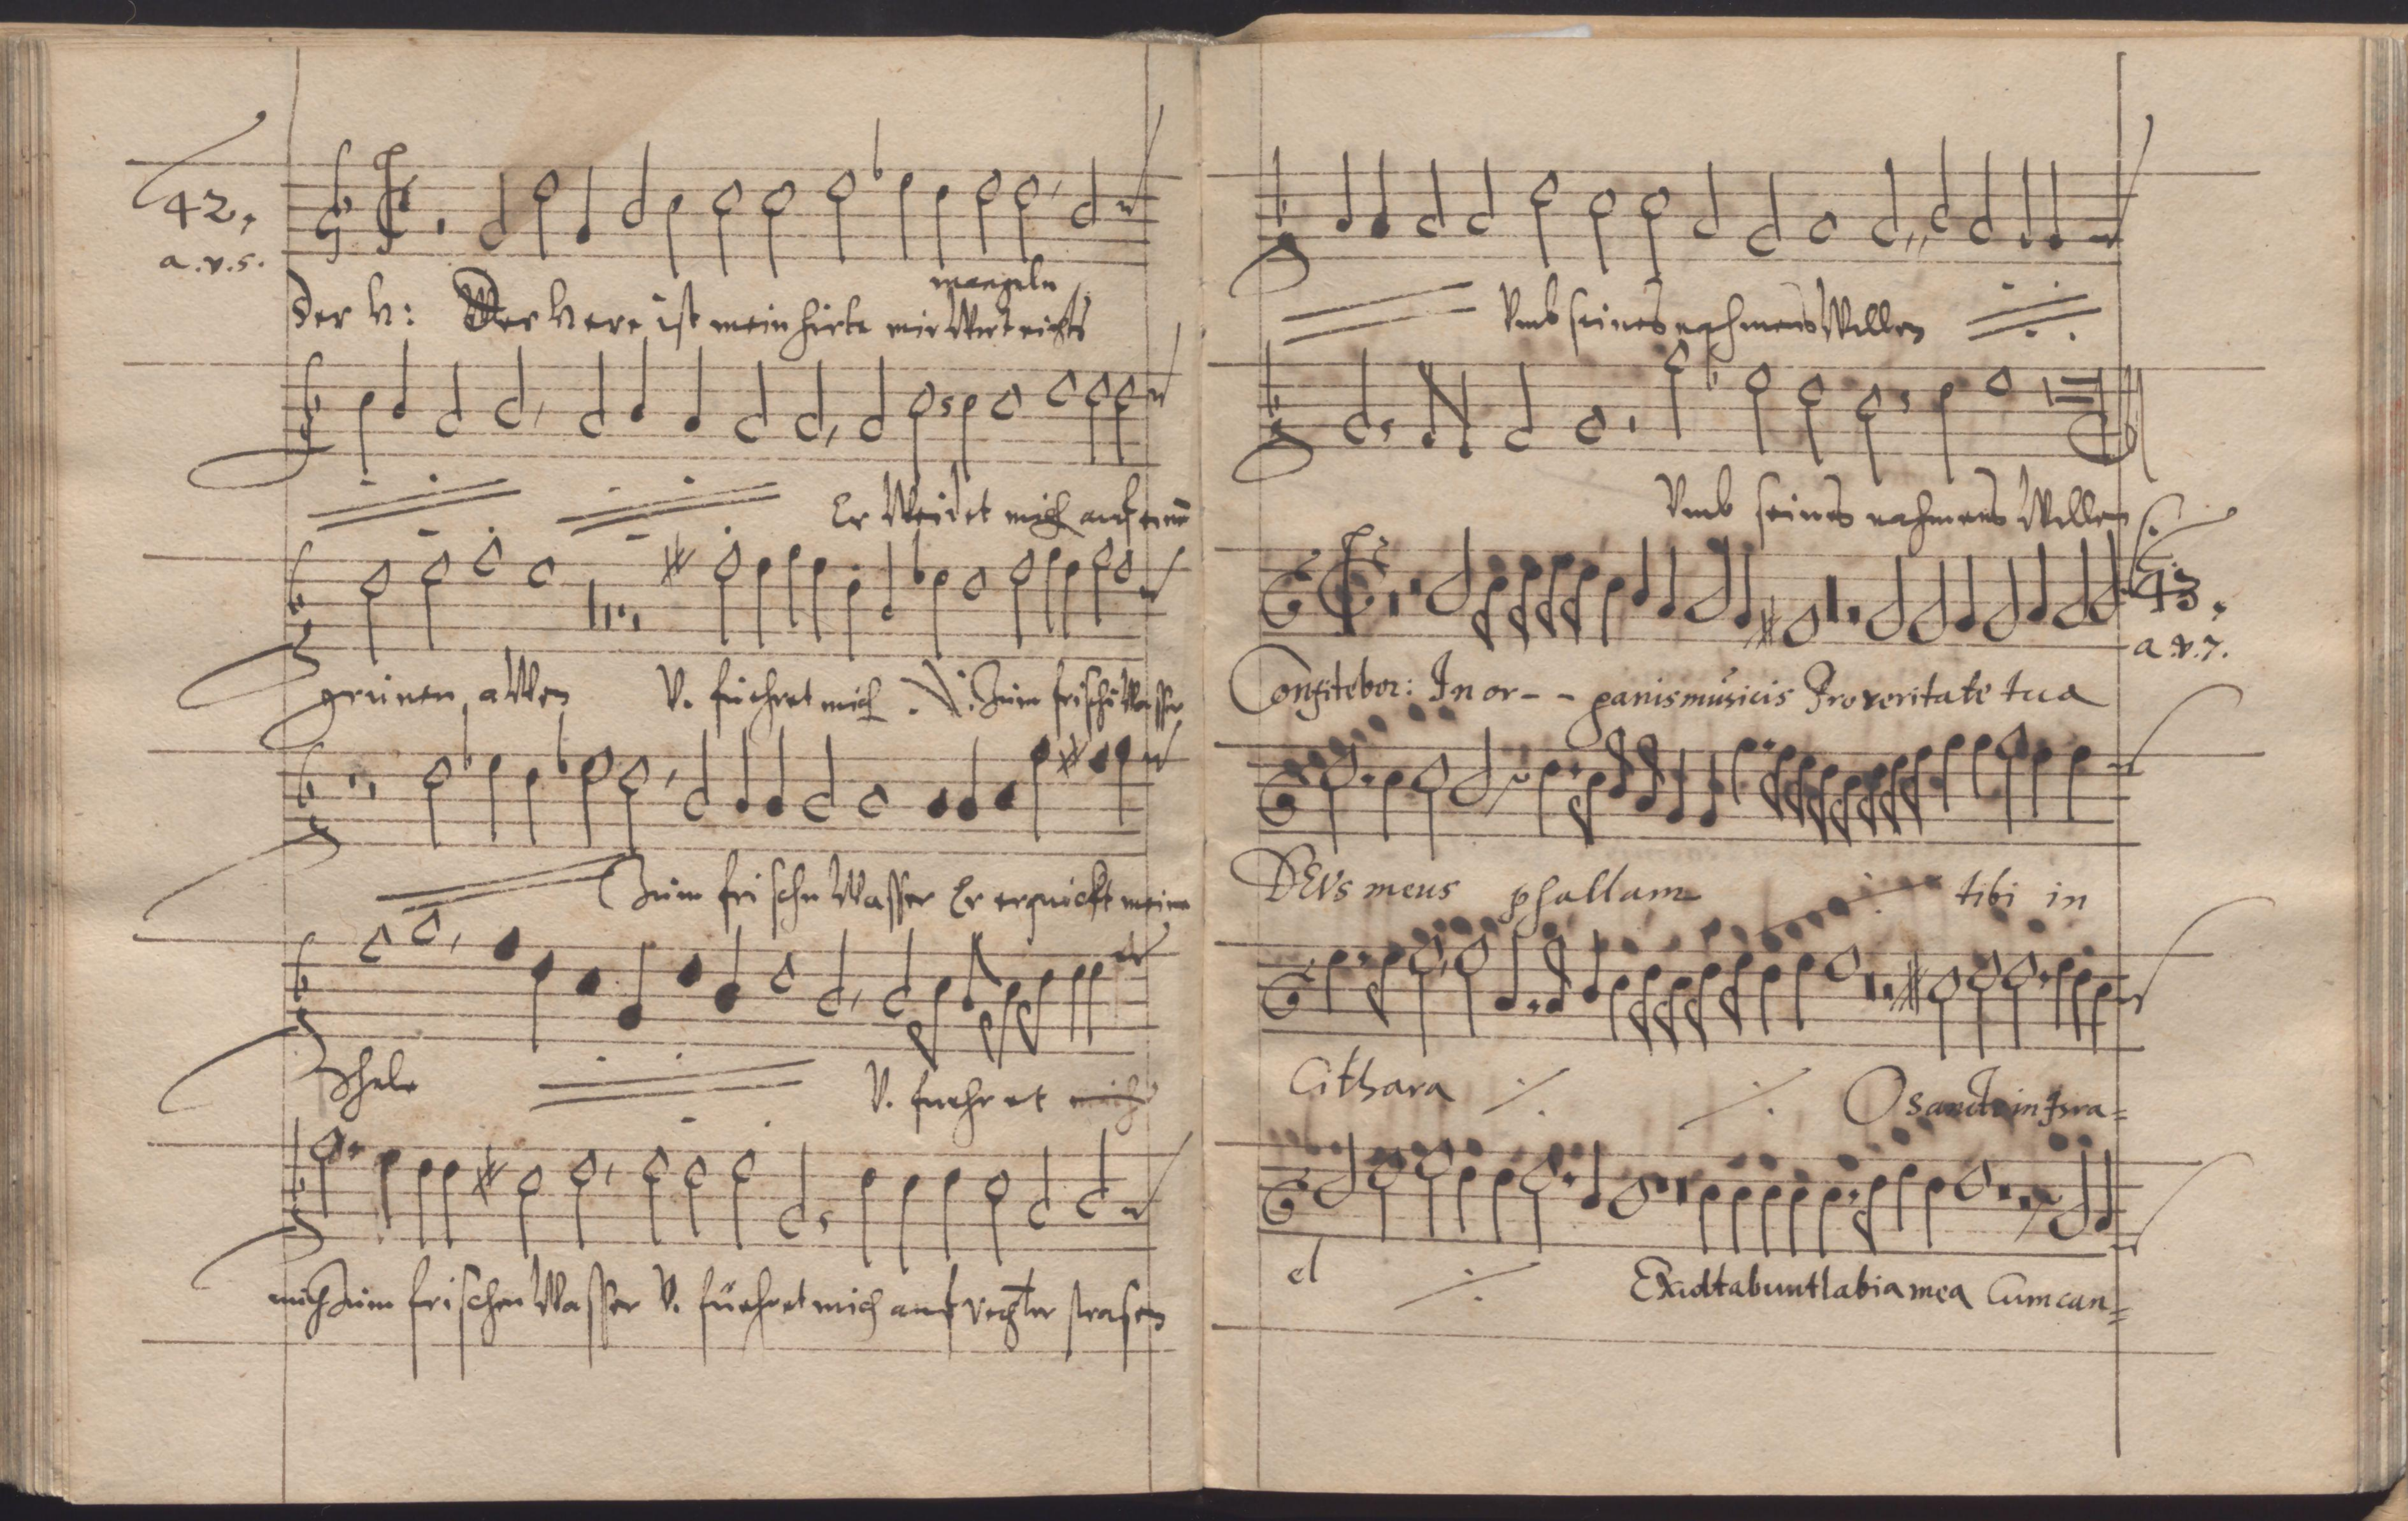 42.
a.v.5.
mangeln
Der H: Der Herr ist mein hirte mir Wert nichts
Er Weidet mich auf eine
grünen awen V. führet mich V. Zum frischn Wasser
Zum frischn Wasser Er erquickt meine
Sehele V. fuehret mich
mich Zum frischen Wasser V. führet mich auf rechter strasen
Vmb seines nahmens Willen
Vmb seines nahmens Willen
43.
a.v.7.
Confitebor: In or-- ganis musicis Pro veritate tua
DEVs meus psallam tibi in
Cithara O sancte in Isra=
el Exultabunt labia mea Cum can=